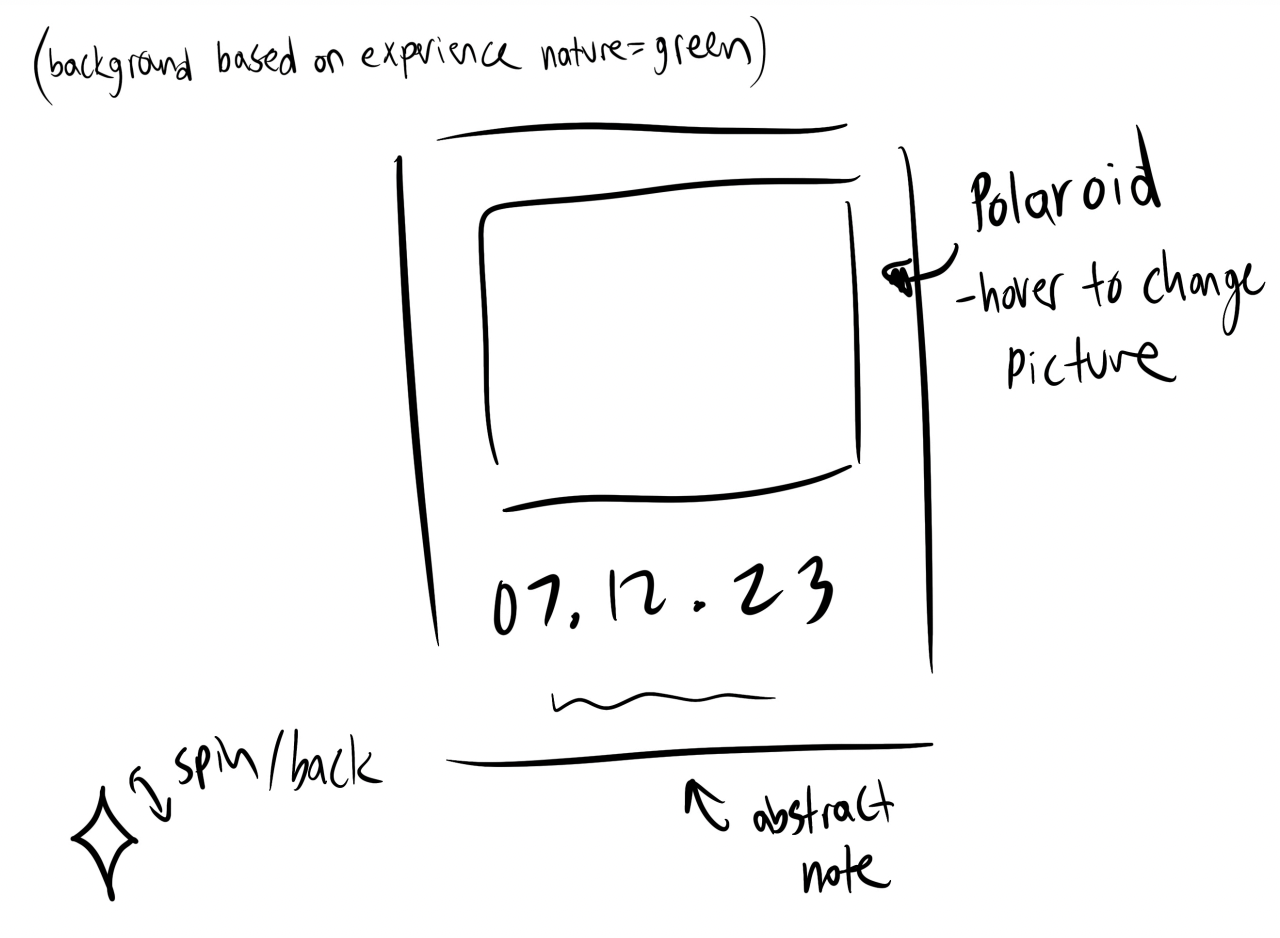 (background based on experience nature=green)
Polaroid
-hover to change
picture
07.12.23
spin/back
abstract
note